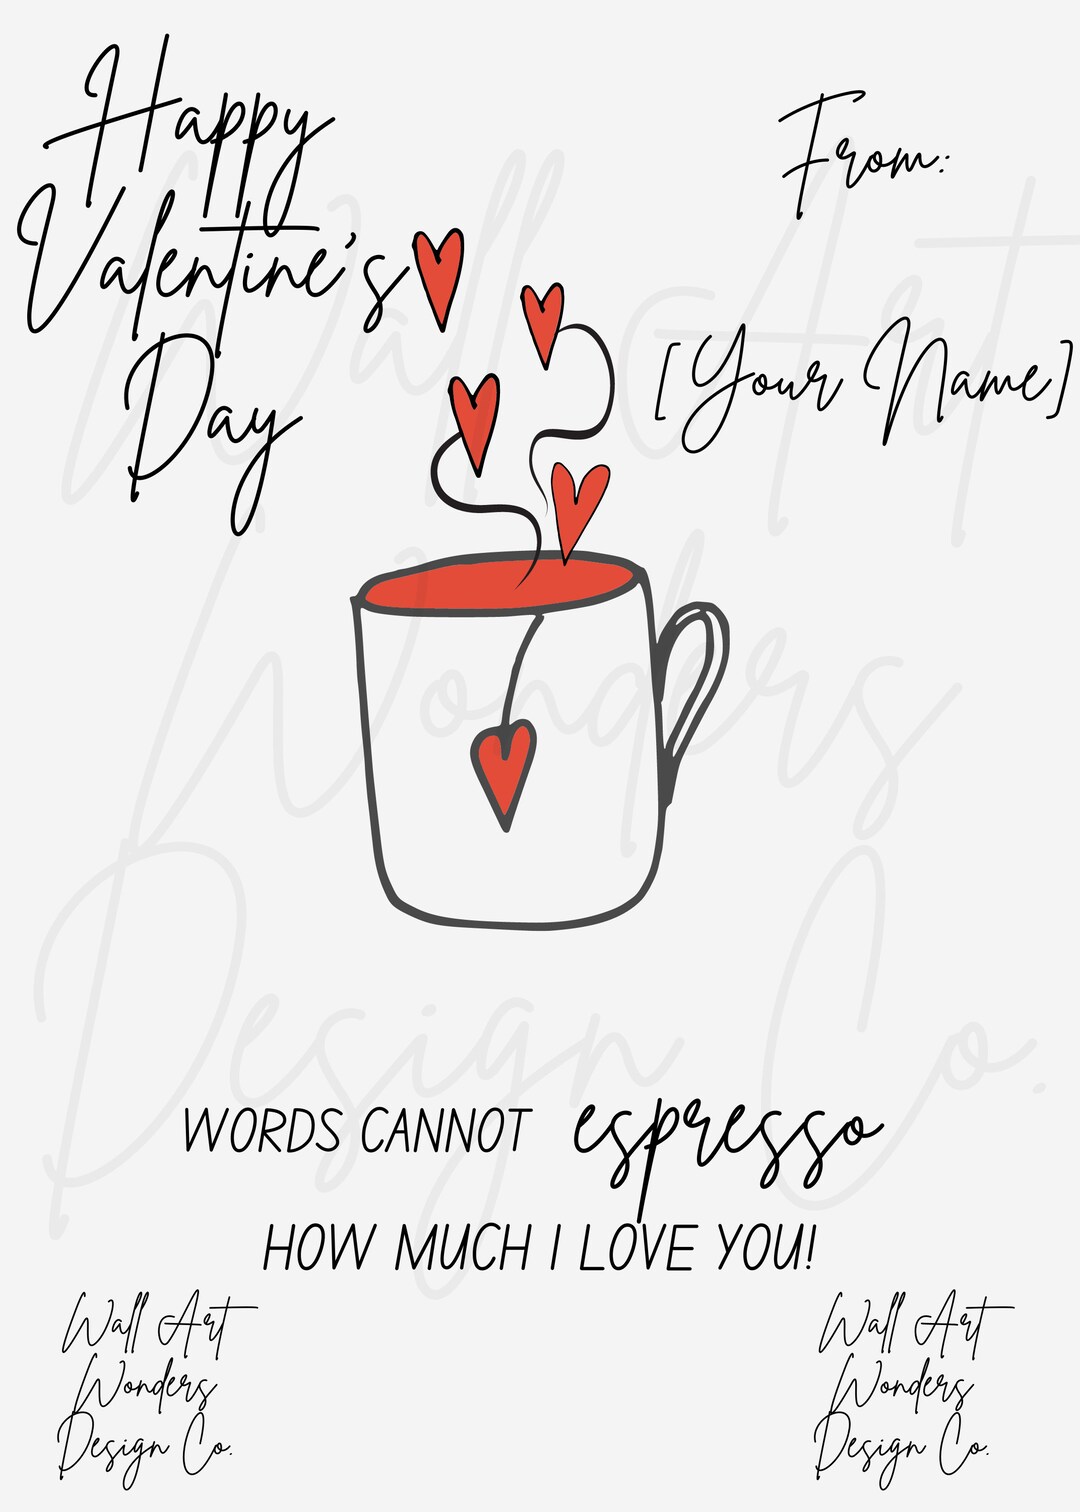 Happy
Valentine's
Day
From:
[Your Name]
Wall Art
Wonders
Design Co.
WORDS CANNOT espresso
HOW MUCH I LOVE YOU!
Wall Art
Wonders
Design Co.
Wall Art
Wonders
Design Co.